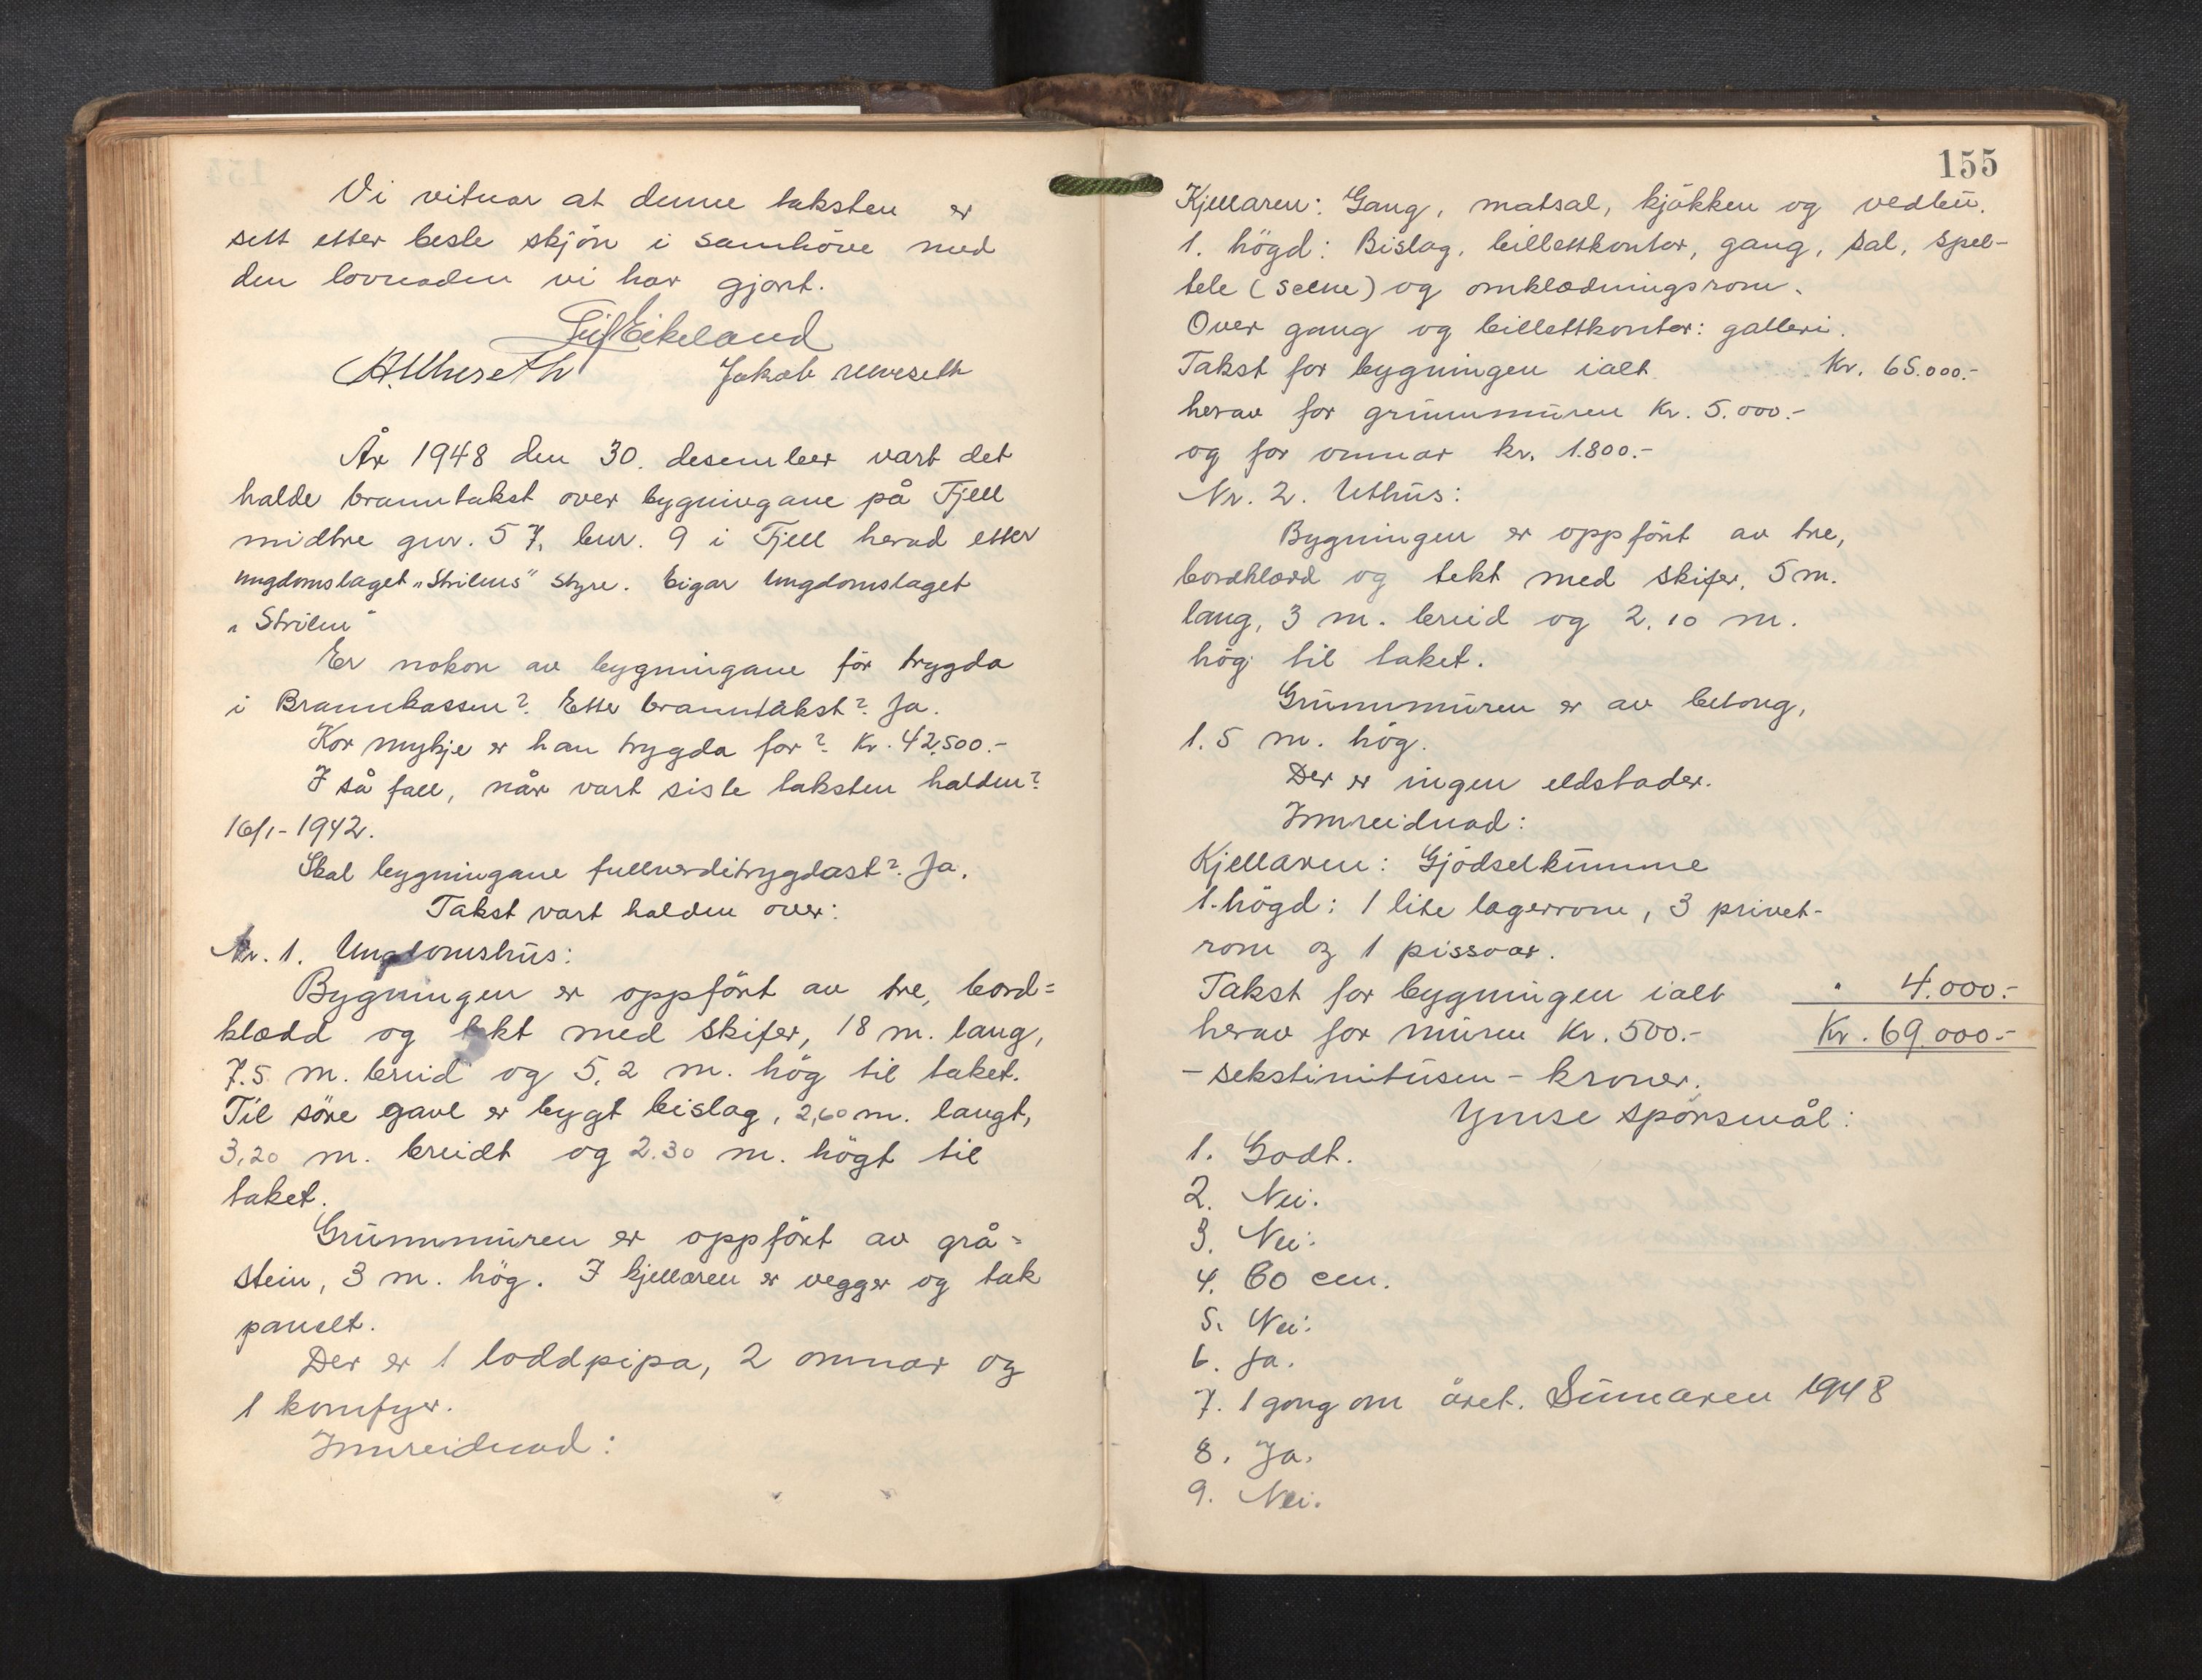 Vi vitnar at denne taksten er
sett etter beste skjön i samhöve med
den lovnaden vi har gjort.
Leif Eikeland
A. Ulveseth Jakob Ulveseth
År 1948 den 30. desember vart det
halde branntakst over bygningane på Fjell
midtre gnr. 57, bnr. 9 i Fjell herad etter
ungdomslaget „Strilens" styre. Eigar Ungdomslaget
„Strilen"
Er nokon av bygningane för trygda
i Brannkassen? Etter branntakst? Ja.
Kor mykje er han trygda for? Kr. 42.500.-
I så fall, når vart siste taksten halden?
16/1-1942.
Skal bygningane fullverditrygdast? Ja.
Takst vart halden over:
Nr. 1. Ungdomshus:
Bygningen er oppfört av tre, bord=
klædd og tekt med skifer, 18 m. lang,
7.5 m. breid og 5.2 m. hög til taket.
Til söre gavl er bygt bislag, 2,60 m. langt,
3,20 m. breidt og 2.30 m. högt til
taket.
Grunnmuren er oppfört av grå=
stein, 3 m. hög. I kjellaren er vegger og tak
panelt.
Der er 1 loddpipa, 2 omnar og
1 komfyr.
Innreidnad:
155
Kjellaren: Gang, matsal, kjökken og vedbu.
1. högd: Bislag, billettkontor, gang, sal, spel-
tele (scene) og omklædningsrom.
Over gang og billettkontor: galleri.
Takst for bygningen ialt Kr. 65.000.-
herav for grunnmuren Kr. 5.000.-
og for omnar kr. 1.800.-
Nr. 2. Uthus:
Bygningen er oppfört av tre,
bordklædd og tekt med skifer, 5 m.
lang, 3 m. breid og 2.10 m.
hög til taket.
Grunnmuren er av betong,
1.5 m. hög.
Der er ingen eldstader.
Innreidnad:
Kjellaren: Gjödselkumme
1. högd: 1 lite lagerrom, 3 privet-
rom og 1 pissoar.
Takst for bygningen ialt " 4.000.-
herav for muren Kr. 500.- Kr. 69.000.-
- sekstinitusen - kroner.
Ymse spörsmål:
1. Godt.
2. Nei.
3. Nei.
4. 60 cm.
5. Nei.
6. Ja.
7. 1 gong om året. Sumaren 1948
8. Ja.
9. Nei.